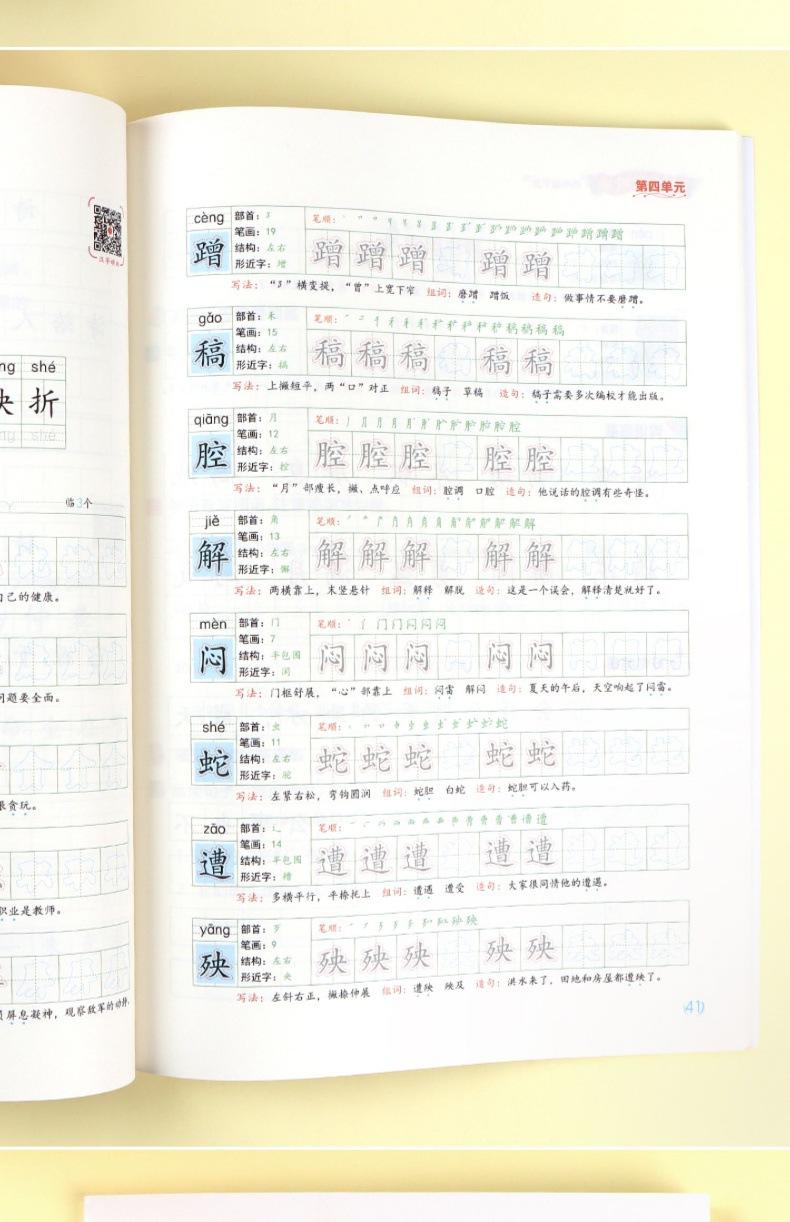 汉字听写
ng shé
央 折
ng shé
临3个
自己的健康。
问题要全面。
贪玩。
职业是教师。
屏息凝神，观察敌军的动静。
第四单元
cèng 部首： 笔顺：
蹭 笔画：19 蹭 蹭 蹭 蹭 蹭
结构：左右
形近字：增
写法：“⻊”横变提，“曾”上宽下窄 组词：磨蹭 蹭饭 造句：做事情不要磨蹭。
gǎo 部首：禾 笔顺：
稿 笔画：15 稿 稿 稿 稿 稿
结构：左右
形近字：搞
写法：上撇短平，两“口”对正 组词：稿子 草稿 造句：稿子需要多次编校才能出版。
qiāng 部首：月 笔顺：
腔 笔画：12 腔 腔 腔 腔 腔
结构：左右
形近字：控
写法：“月”部瘦长，撇、点呼应 组词：腔调 口腔 造句：他说话的腔调有些奇怪。
jiě 部首：角 笔顺：
解 笔画：13 解 解 解 解 解
结构：左右
形近字：懈
写法：两横靠上，末竖悬针 组词：解释 解脱 造句：这是一个误会，解释清楚就好了。
mèn 部首：门 笔顺：
闷 笔画：7 闷 闷 闷 闷 闷
结构：半包围
形近字：闰
写法：门框舒展，“心”部靠上 组词：闷雷 解闷 造句：夏天的午后，天空响起了闷雷。
shé 部首：虫 笔顺：
蛇 笔画：11 蛇 蛇 蛇 蛇 蛇
结构：左右
形近字：驼
写法：左紧右松，弯钩圆润 组词：蛇胆 白蛇 造句：蛇胆可以入药。
zāo 部首：辶 笔顺：
遭 笔画：14 遭 遭 遭 遭 遭
结构：半包围
形近字：糟
写法：多横平行，平捺托上 组词：遭遇 遭受 造句：大家很同情他的遭遇。
yāng 部首：歹 笔顺：
殃 笔画：9 殃 殃 殃 殃 殃
结构：左右
形近字：央
写法：左斜右正，撇捺伸展 组词：遭殃 殃及 造句：洪水来了，田地和房屋都遭殃了。
41